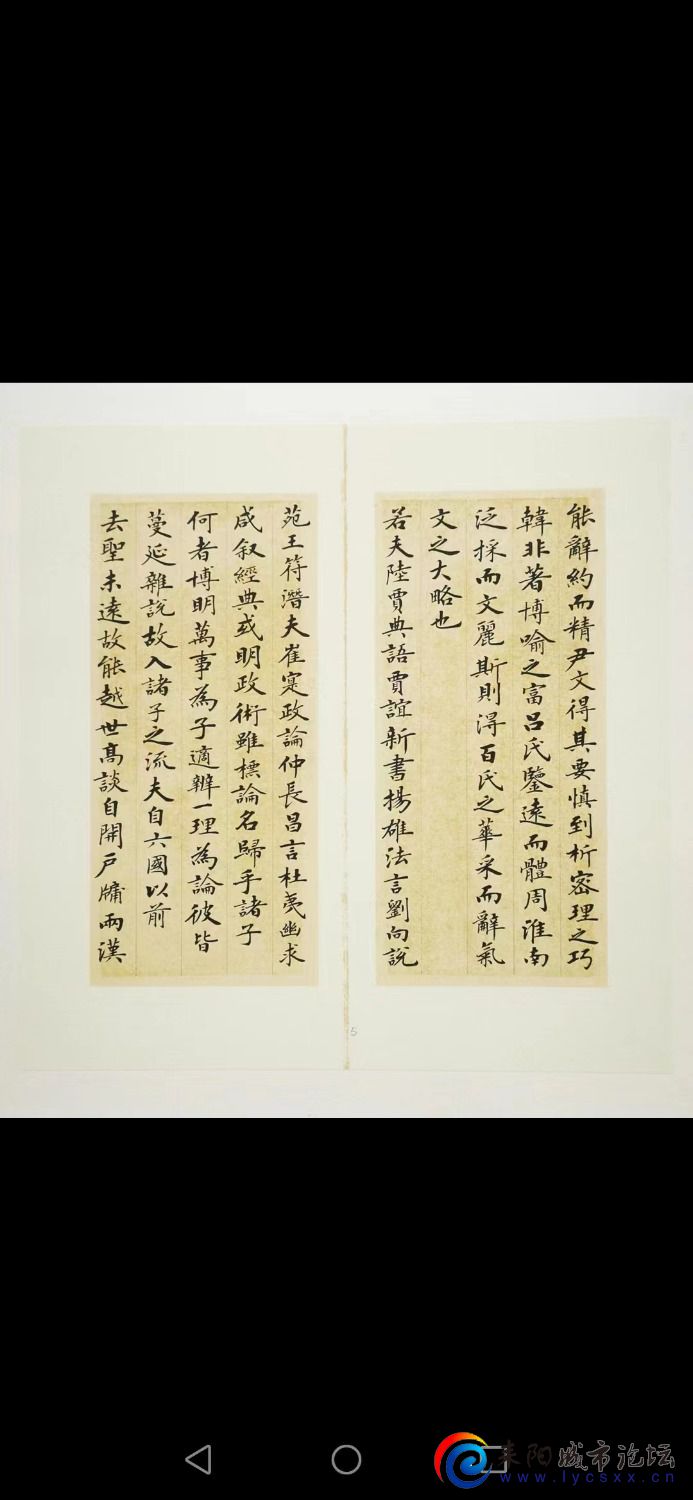 能辭約而精尹文得其要慎到析密理之巧
韓非著博喻之富呂氏鑒遠而體周淮南
泛採而文麗斯則得百氏之華采而辭氣
文之大略也
若夫陸賈典語賈誼新書揚雄法言劉向說
苑王符潛夫崔寔政論仲長昌言杜夷幽求
咸叙經典或明政術雖標論名歸乎諸子
何者博明萬事為子適辨一理為論彼皆
蔓延雜說故入諸子之流夫自六國以前
去聖未遠故能越世高談自開戶牖兩漢
5
耒阳城市论坛
www.lycsxx.cn